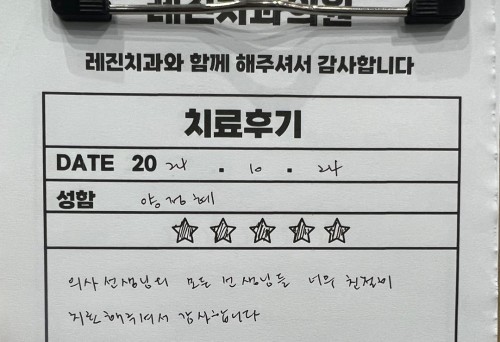 레진치과의원
레진치과와 함께 해주셔서 감사합니다
치료후기
DATE 2024 . 10 . 24
성함 양정혜
의사선생님외 모든 선생님들 너무 친절히
치료해주셔서 감사합니다